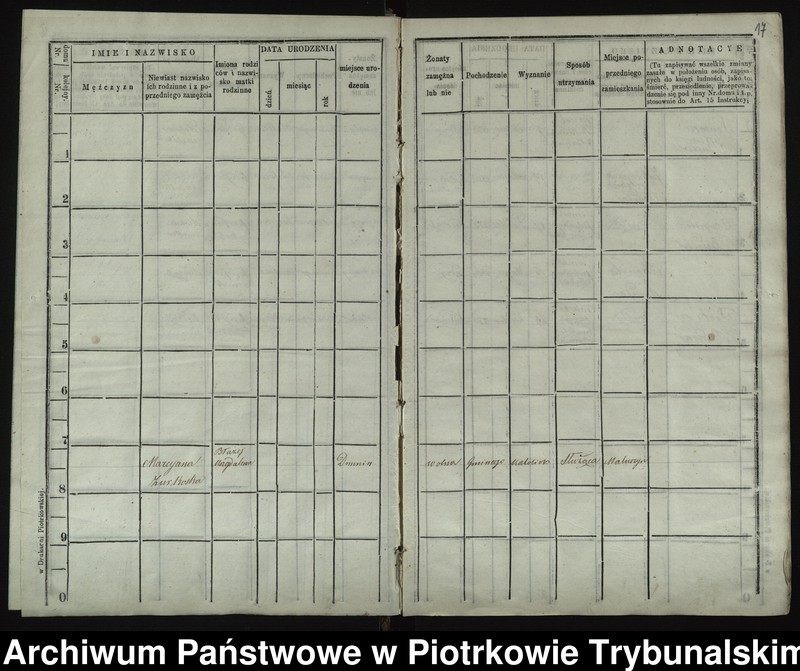 17
Nr. domu
Nr. kolejny.
IMIE I NAZWISKO
Mężczyzn
Niewiast nazwisko
ich rodzinne i z po-
przedniego zamęźcia
Imiona rodzi
ców i nazwi-
sko matki
rodzinne
DATA URODZENIA
dzień
miesiąc
rok
miejsce uro-
dzenia
Żonaty
zamężna
lub nie
Pochodzenie
Wyznanie
Sposób
utrzymania
Miejsce po-
przedniego
zamieszkania
ADNOTACYE
(Tu zapisywać wszelkie zmiany
zaszłe w położeniu osób, zapisa-
nych do księgi ludności, jako to:
śmierć, przesiedlenie, przeprowa-
dzenie się pod inny Nr. domu i t. p.
stosownie do Art. 15 Instrukcyi
1
2
3
4
5
6
7
Maryana
Błażej
Magdalena
wolna
Służąca
8
9
0
w Drukarni Piotrkowskiej.
Archiwum Państwowe w Piotrkowie Trybunalskim